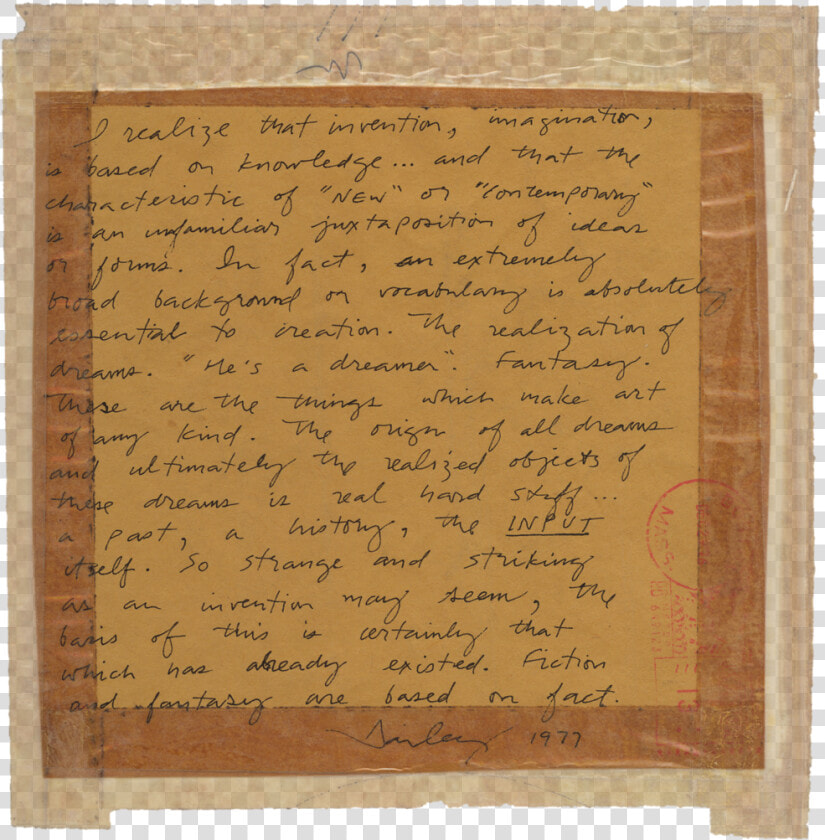 I realize that invention, imagination,
is based on knowledge... and that the
characteristic of "NEW" or "Contemporary"
is an unfamiliar juxtaposition of ideas
or forms. In fact, an extremely
broad background or vocabulary is absolutely
essential to creation. The realization of
dreams. "He's a dreamer". Fantasy.
These are the things which make art
of any kind. The origin of all dreams
and ultimately the realized objects of
these dreams is real hard stuff...
a past, a history, the INPUT
itself. So strange and striking
as an invention may seem, the
basis of this is certainly that
which has already existed. Fiction
and fantasy are based on fact.
1977